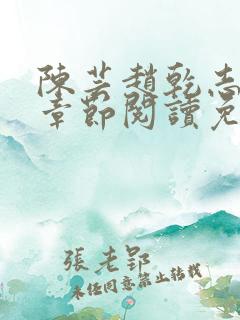 陳芸趙乾志
章節閱讀免
張老郢
未任同意禁止轉載